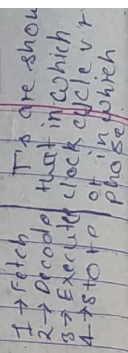 1 → Fetch
2 → Decode
3 → Execute
4 → Store
T's are show
that in which
clock cycle
or in which
phase.